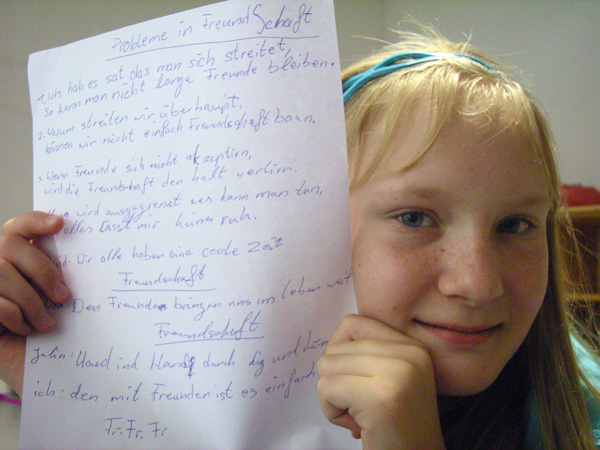 Probleme in FreundSchaft
1. Ich hab es sat das man sich streitet,
So kann man nicht lange Freunde bleiben.
2. Warum streiten wir überhaupt,
können wir nicht einfach Freundschaft baun.
3. Wenn Freunde sich nicht akzeptirn,
wird die Freundschaft den halt verlirn.
wird ausgegrenzt was kann man tun,
alles lässt mir keine ruh.
Wir alle haben eine coole Zeit
Freundschaft
Den Freunde bringen uns im Leben weit
Freundschaft
Hand ind Hand durch dig und dünn
ich: den mit Freunden ist es einfach
Fr. Fr. Fr